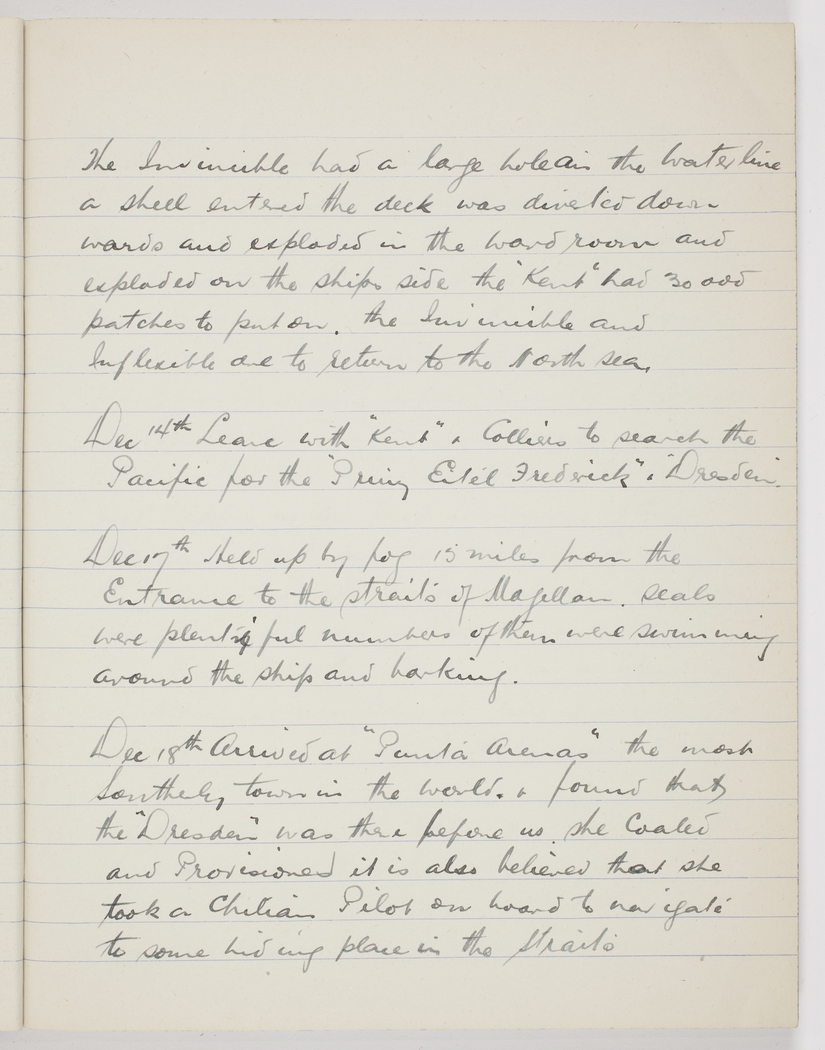 The Invincible had a large hole in the water line
a shell entered the deck was diverted down
wards and exploded in the ward room and
exploded on the ships side the "Kent" had 30 odd
patches to put on. the Invincible and
Inflexible are to return to the North sea.
Dec 14th Leave with "Kent" & Colliers to search the
Pacific for the "Prinz Eitel Frederick" & "Dresden".
Dec 17th Held up by fog 15 miles from the
Entrance to the straits of Magellan. seals
were plentiful numbers of them were swimming
around the ship and barking.
Dec 18th Arrived at "Punta Arenas" the most
Southerly town in the world. & found that
the "Dresden" was there before us. she Coaled
and Provisioned it is also believed that she
took a Chilian Pilot on board to navigate
to some hiding place in the Straits